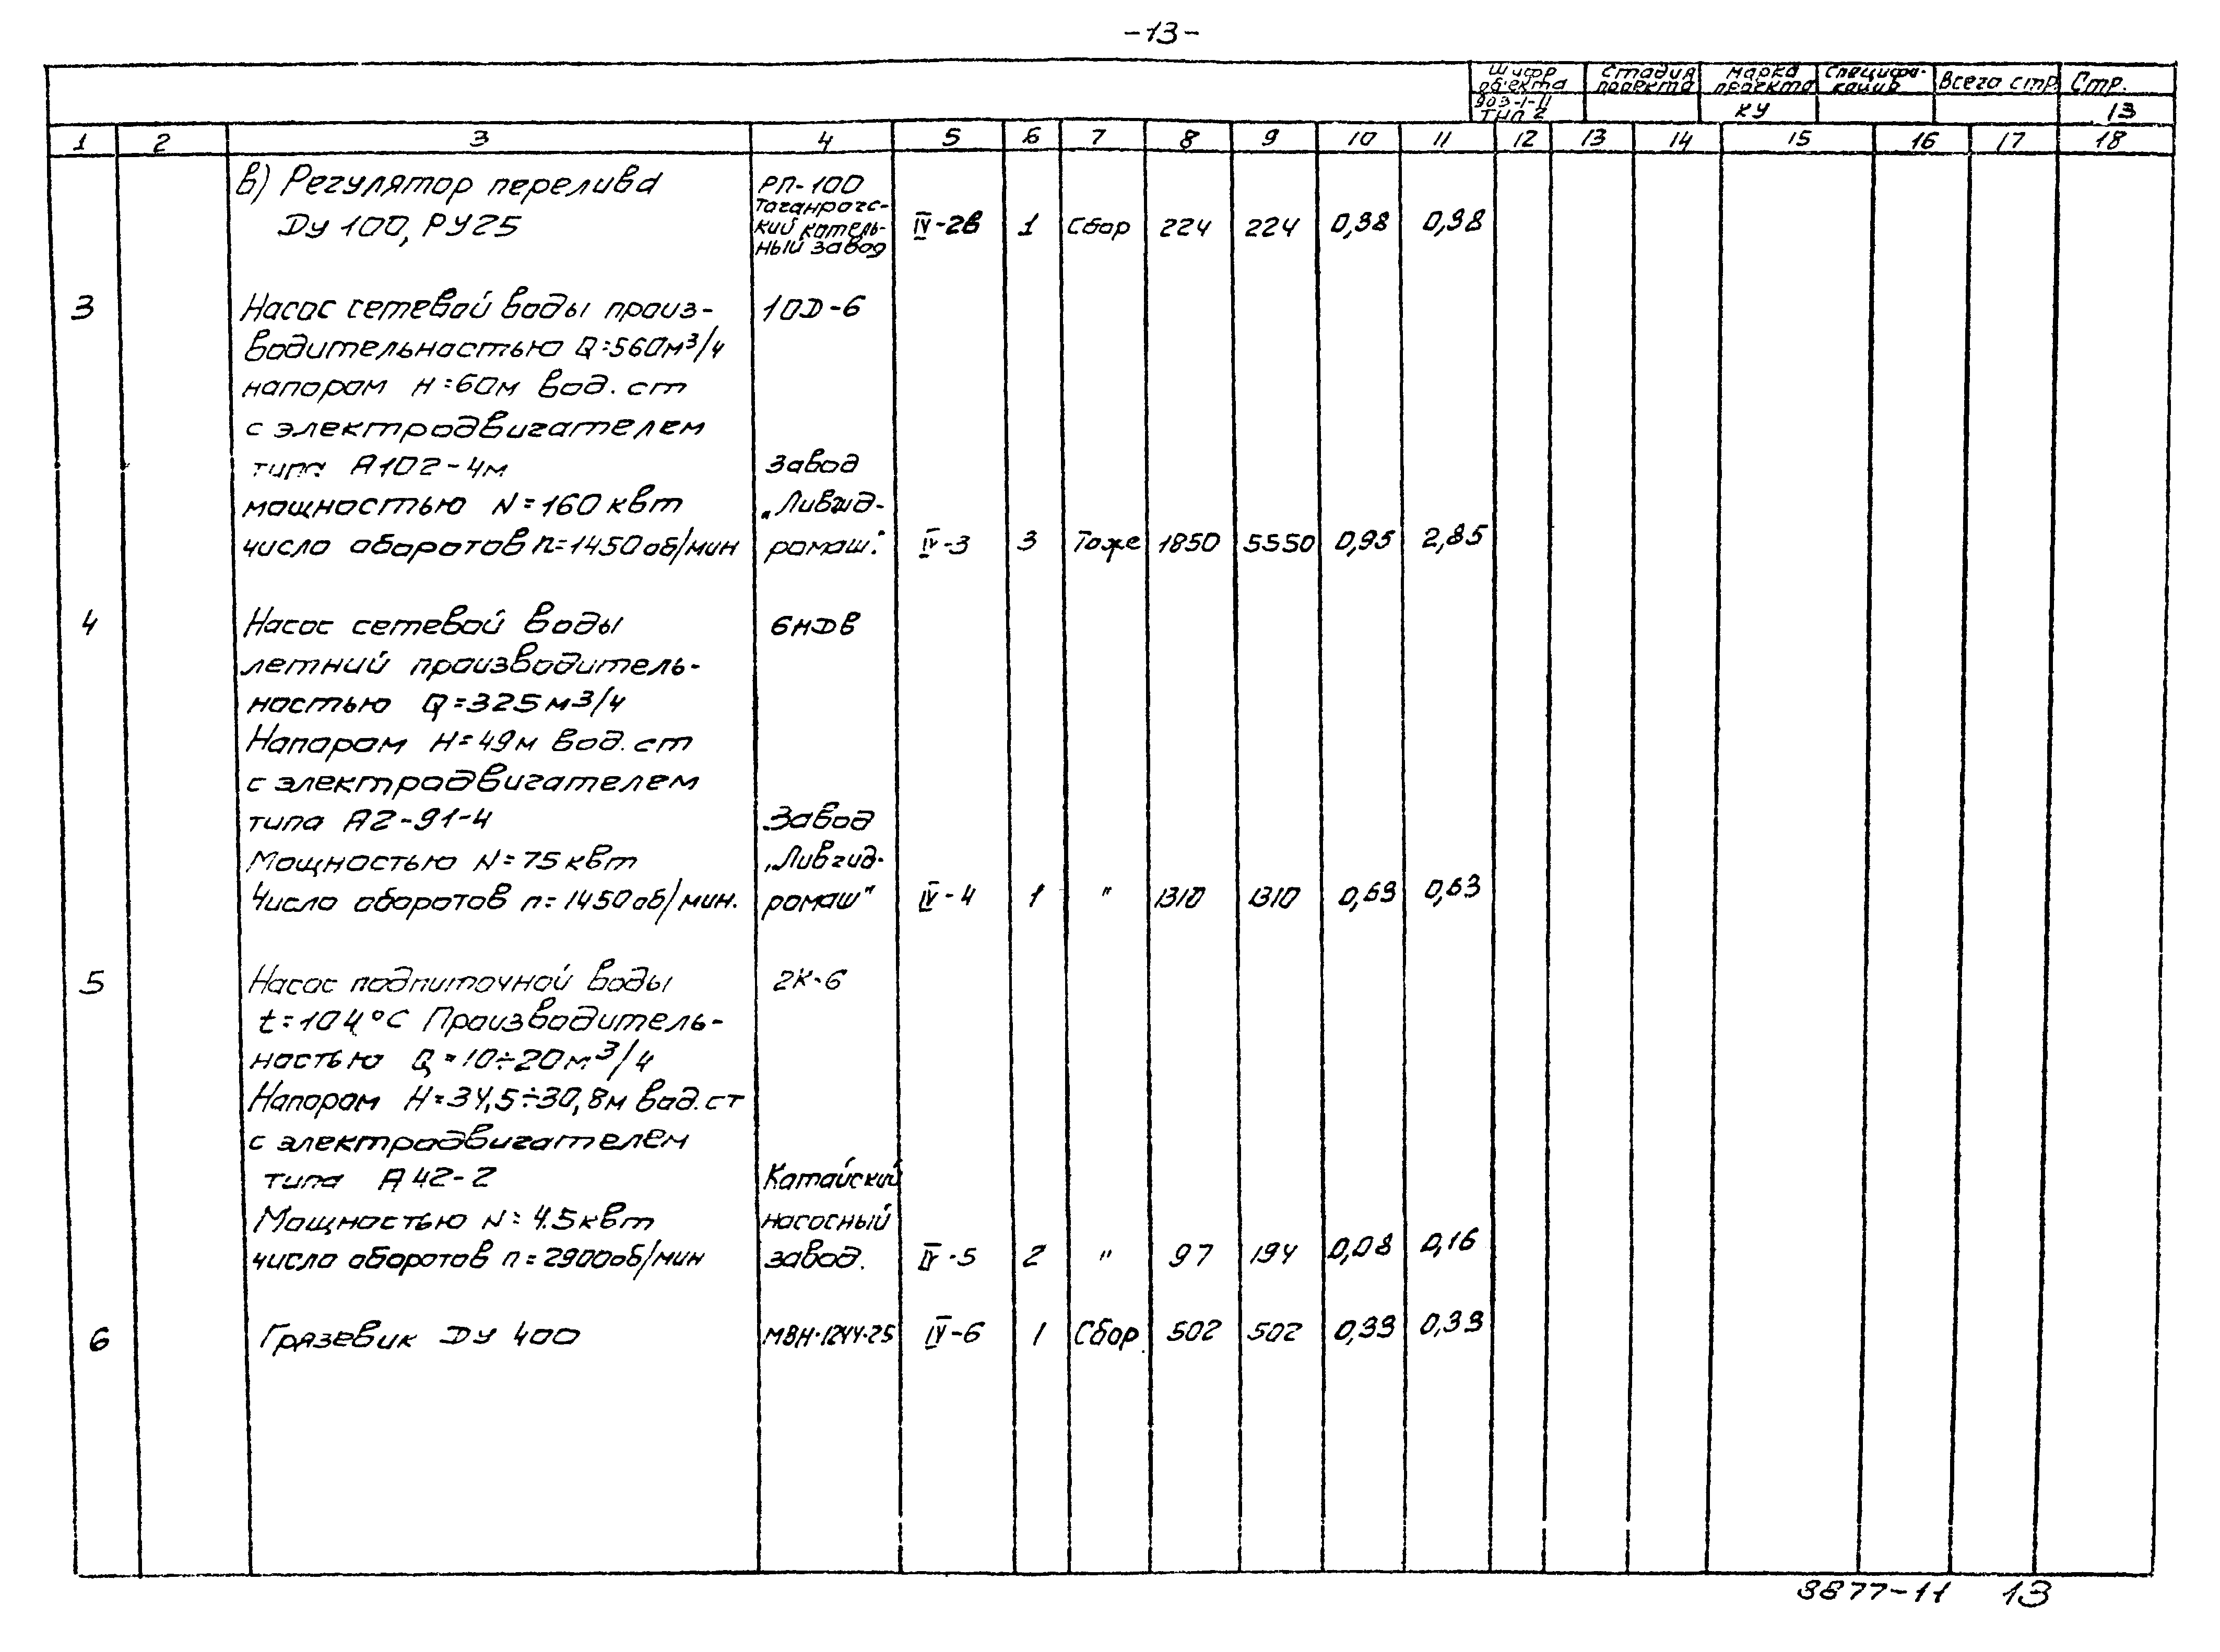 -13-
Шифр объекта Стадия проекта Марка проекта Специфи-кация Всего стр. Стр.
903-1-11 ТИП 2 КУ 13
1 2 3 4 5 6 7 8 9 10 11 12 13 14 15 16 17 18
в) Регулятор перелива РП-100
Таганрогс-
Ду 100, РУ25 кий котель- IV-2в 1 Сбор 224 224 0,38 0,38
ный завод
3 Насос сетевой воды произ- 10Д-6
водительностью Q=560м³/ч
напором H=60м вод. ст
с электродвигателем
типа А102-4м Завод
мощностью N=160 квт „Ливгид-
число оборотов n=1450 об/мин ромаш." IV-3 3 Тоже 1850 5550 0,95 2,85
4 Насос сетевой воды 6НДВ
летний производитель-
ностью Q=325 м³/ч
Напором H=49м вод. ст
с электродвигателем
типа А2-91-4 Завод
Мощностью N=75 квт „Ливгид-
Число оборотов n=1450 об/мин. ромаш" IV-4 1 " 1310 1310 0,63 0,63
5 Насос подпиточной воды 2К-6
t=104°С Производитель-
ностью Q=10÷20м³/ч
Напором H=34,5÷30,8м вод.ст
с электродвигателем
типа А42-2 Катайский
Мощностью N=4.5квт насосный
число оборотов n=2900об/мин завод. IV-5 2 " 97 194 0,08 0,16
6 Грязевик ДУ 400 МВН·1244·25 IV-6 1 Сбор. 502 502 0,33 0,33
8877-11 13